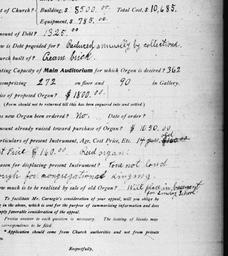 of Church? Building, $ 8500.00 Total Cost, $ 10,685.
Equipment, $ 785.00
mount of Debt? 1325.00
is Debt provided for? Reduced annually by collections.
urch built of? Cream brick.
ting Capacity of Main Auditorium for which Organ is desired? 362
comprising 272 on floor and 90 in Gallery.
of proposed Organ? $ 1800.00
(Form should not be returned till this has been enquired into and settled)
new Organ been ordered? No. Date of order?
mount already raised toward purchase of Organ? $ 1050.00
articulars of present Instrument, Age, Cost Price, Etc. 14
Price $ 160.00 Reed organ
eason for displacing present Instrument? Tone not loud
ough for congregational singing.
ow much is to be realized by sale of old Organ? Will place in basement
for Sunday School
To facilitate Mr. Carnegie's consideration of your appeal, will you oblige by
in the above, which is sent for the purpose of summarizing information and thus
ply favorable consideration of the appeal.
Precise answer to each question is necessary. The heating of blanks may
correspondence to be filed.
Application should come from Church authorities and not from private
Respectfully,